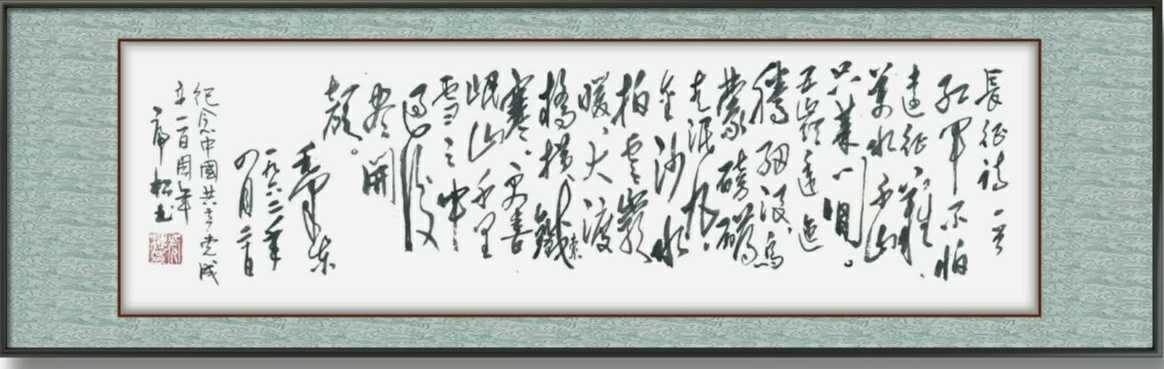 長征詩一首
红軍不怕
遠征難,
萬水千山
只等閒。
五嶺逶迤
騰細浪,烏
蒙磅礴
走泥丸。
金沙水
拍雲崖
暖,大渡
橋橫鐵索
寒。更喜
岷山千里
雪三軍
過後
盡開
顏。
毛澤東
一九六二年
四月二十日
纪念中國共产党成
立一百周年